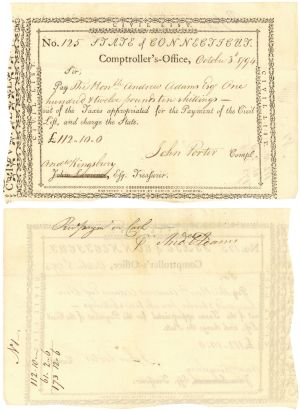 CIVIL LIST.
No. 125 STATE of CONNECTICUT.
Comptroller's-Office, October 3d 1794
Sir,
Pay The Honble Andrew Adams Esq One
hundred & twelve pounds ten shillings —
out of the Taxes appropriated for the Payment of the Civil
List, and charge the State.
£112-10-0
John Porter Compt.
Andw Kingsbury
John Lawrence, Esq. Treasurer.
Recd payt in Cash
Andw Adams
No 1
112.10—
61.2—6
173.10.6